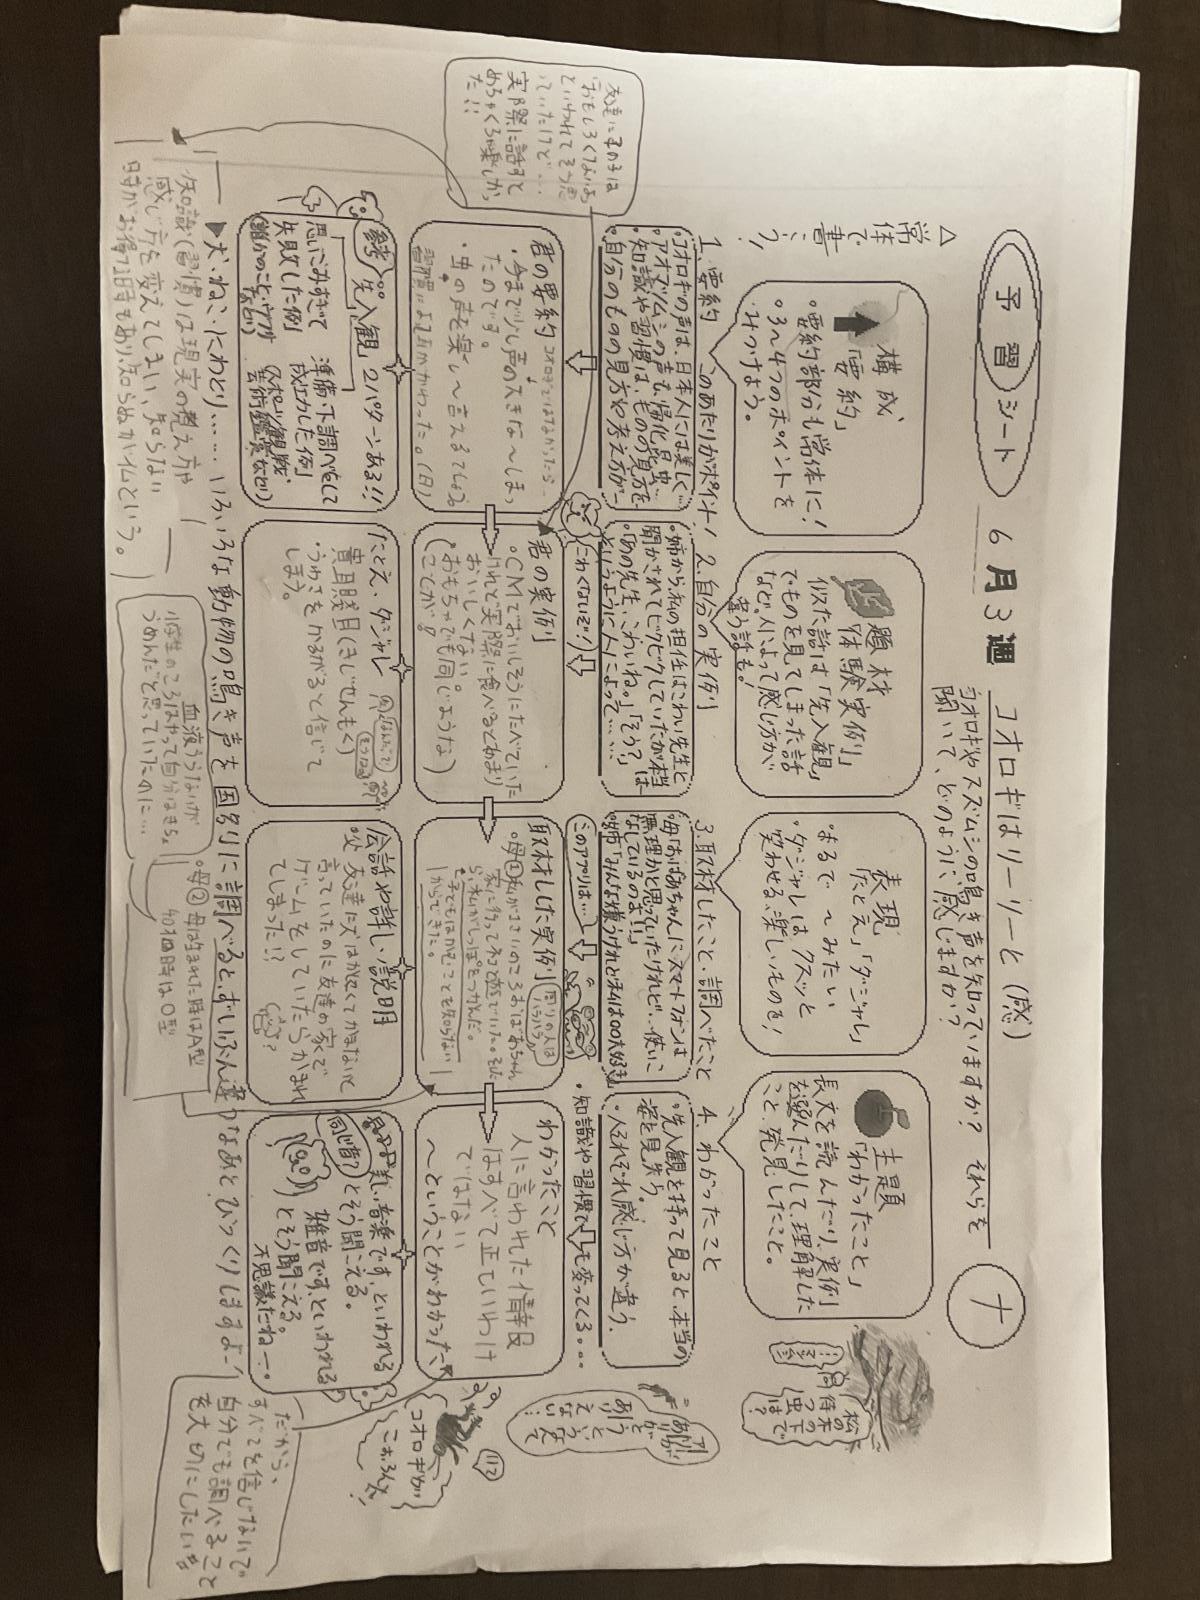 予習シート
6月3週
コオロギはリーリーと（感）
コオロギやスズムシの鳴き声を知っていますか？ それらを
聞いて、どのように感じますか？
△常体で書こう！
構成
「要約」
・要約部も常体に！
・3〜4つのポイントを
みつけよう。
題材
「体験実例」
似た話は「先入観」
でものを見てしまった話
など。人によって感じ方が
違う話も！
表現
「たとえ」「ダジャレ」
まるで〜みたい
・ダジャレはクスッと
笑わせる、楽しいものを！
主題
「わかったこと」
長文を読んだり、実例
を選んだりして、理解した
こと、発見したこと。
1.要約 このあたりがポイント！
・コオロギの声は、日本人には美しく…
・アオマツムシの声で、帰化昆虫…
・知識や習慣は、ものの見方を…
・自分のものの見方や考え方が…
2.自分の実例
・姉から、私の担任はこわい先生と
聞かされてビクビクしていたが本当は
・「あの先生、こわいね。」「そう？」
というように人によって……
こわくないぞ！
3.取材したこと、調べたこと
・母「おばあちゃんにスマートフォンは
無理かと思っていたけれど…使いこ
なしているのよ！！」
・姉「みんな嫌うけれど私は○○大好き」
このアプリは…
4.わかったこと
・先入観を持って見ると、本当の
姿を見失う。
・人それぞれ感じ方が違う。
・知識や習慣でも変ってくる。。。
君の要約
・今まで少し声の大きな〜しま
ったのです。
・虫の声を楽し〜言えるでしょう
君の実例
○CMでおいしそうにたべていた
けれど実際に食べるとあまり
おいしくない。
（おもちゃでも同じような
ことが！）
取材した実例
周りの人は
ハラハラ
・母①私が小さいころおばあちゃん
家に行ってネコと遊んでいた。
わかったこと
人に言われた情報
はすべて正しいわけ
ではない
〜ということがわかった。
参考 先入観 2パターンある！！
思いこみすぎて
失敗した例
準備・下調べをして
成功した例
スポーツ観戦
芸術鑑賞など
たとえ、ダジャレ
貴耳賤目（きじせんもく）
・うわさをかるがると信じて
しまう。
会話や詳しい説明
父 友達に犬はかしこくてかまないと
言っていたのに友達の家で
ゲームをしていたらかまれ
てしまった！？
美しい音楽です、といわれる
とそう聞こえる。
雑音です、といわれる
とそう聞こえる。
不思議だね…。
▶犬、ねこ、にわとり……、いろいろな動物の鳴き声を国別に調べると、ずいぶん違うなあとびっくりしますよ！
友達にその子は
おもしろくないよ
といわれてそう思
っていたけど…
実際に話すと
めちゃくちゃ楽しかっ
た！！
知識（習慣）は現実の考え方や
感じ方を変えてしまい、知らない
時がお得な時もあり知らぬが仏という。
血液うらないが
小学生のころはやって自分はきち。
うめんだと思っていたのに…
・母②母は生まれた時はA型
だから、
すべてを信じないで
自分でも調べること
を大切にしたい。
松の木の下
で待つ虫は？
ありが
とう
コオロギが
こおろんだ！